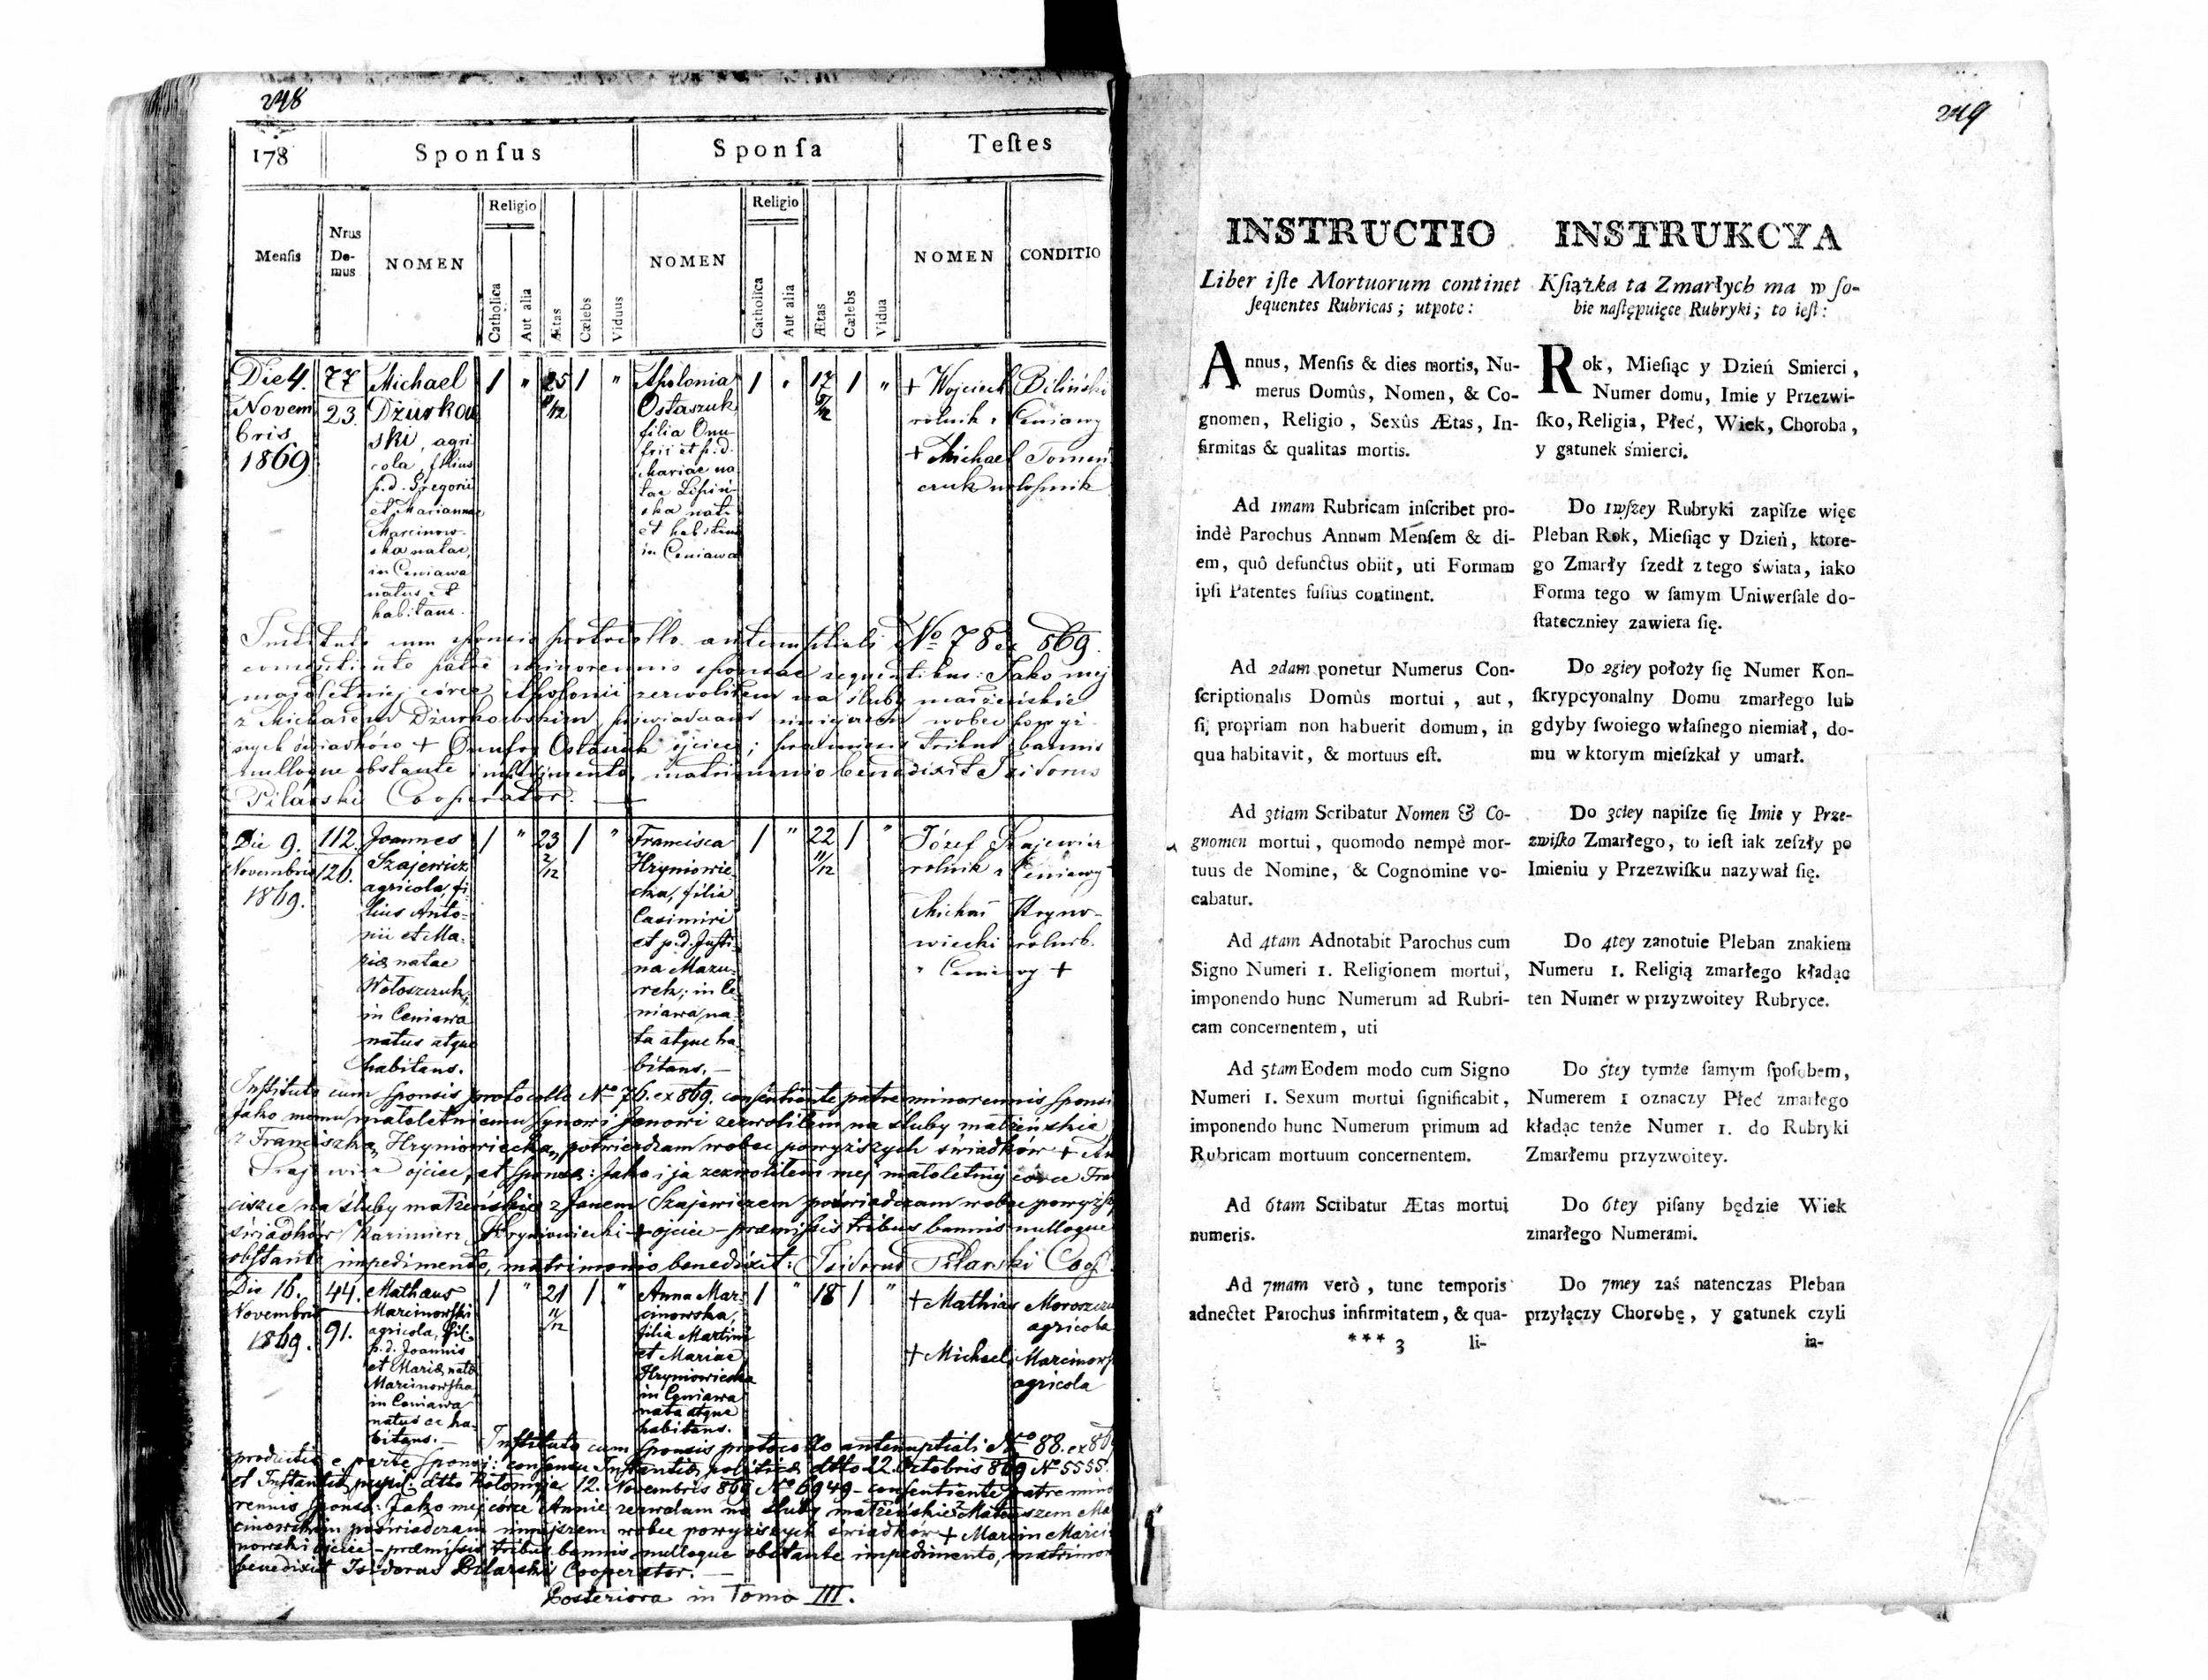 248
178
Sponſus
Sponſa
Teſtes
Menſis
Nrus
De-
mus
NOMEN
Religio
Catholica
Aut alia
Ætas
Cælebs
Viduus
NOMEN
Religio
Catholica
Aut alia
Ætas
Cælebs
Vidua
NOMEN
CONDITIO
Die 4.
Novem
bris
1869
77
23.
Michael
Dżurkow
ski, agri
cola, filius
p.d. Gregorii
et Mariannae
Marcinow-
ska natae,
in Ceniawa
natus et
habitans.
1 " 25 1 "
8/12
Apolonia
Ostaszuk
filia Onu
frii et p.d.
Mariae na
tae Lipiń
ska nata
et habitans
in Ceniawa
1 " 17 1 "
+ Wojciech Biliński
rolnik z Ceniawy
+ Michael
Instituto cum sponsis protocollo antenuptiali No 78 ex 869.
consentiente patre minorennis sponsae sequentibus: Jako mej
małoletniej córce Apolonii zezwoliłem na śluby małżeńskie
z Michałem Dżurkowskim, poświadczam niniejszem wobec powyż
szych świadków + Onufry Ostaszuk ojciec; praemissis tribus bannis
nulloque obstante impedimento, matrimonio benedixit Isidorus
Pilarski Cooperator.
Die 9.
Novembris
1869.
112.
126.
Joannes
Szajewicz
agricola, fi-
lius Anto-
nii et Ma-
riæ natae
Wołoszczuk,
in Ceniawa
natus atque
habitans.
1 " 23 1 "
2/12
Francisca
Hryniowie-
cka, filia
Casimiri
et p.d. Justi-
na Mazu-
rek; in Ce-
niawa na-
ta atque ha-
bitans. —
1 " 22 1 "
11/12
Józef Szajewicz
rolnik z Ceniawy
Michał Hrynio-
wiecki rolnik
z Ceniawy +
Instituto cum sponsis protocollo No 76. ex 869. consentiente patre minorennis sponsi
Jako memu małoletniemu synowi Janowi zezwoliłem na śluby małżeńskie
z Franciszką Hryniowiecką, potwierdzam wobec powyższych świadków +
Szajewicz ojciec, et sponsæ: Jako i ja zezwoliłem mej małoletniej córce Fran
ciszce na śluby małżeńskie z Janem Szajewiczem poświadczam wobec powyższ
świadków Kazimierz Hryniowiecki + ojciec – præmissis tribus bannis nulloque
obstante impedimento, matrimonio benedixit: Isidorus Pilarski Coop.
Die 16.
Novembris
1869.
44.
91.
Mathaus
Marcinowski
agricola, fil.
p.d. Joannis
et Mariæ nata
Marcinowska
in Ceniawa
natus ac ha-
bitans. —
1 " 21 1 "
11/12
Anna Mar-
cinowska,
filia Martini
et Mariae
Hryniowiecka
in Ceniawa
nata atque
habitans.
1 " 18 1 "
+ Mathias
agricola
+ Michael Marcinows
agricola
Instituto cum sponsis protocollo antenuptiali No 88. ex 869
productis e parte sponsi: consensu Instantiæ politicæ ddto 22. Octobris 869 No 5555.
et Instantiæ pupil. ddto Kołomyja 12. Novembris 869 No 6949 – consentiente patre mino
rennis sponsæ: Jako mej córce Annie zezwalam na śluby małżeńskie z Mateuszem Mar
cinowskim poświadczam niniejszem wobec powyższych świadków + Marcin Marci
nowski ojciec – præmissis tribus bannis nulloque obstante impedimento, matrimon
benedixit Isidorus Pilarski Cooperator. —
Posteriora in Tomo III.
249
INSTRUCTIO
Liber iſte Mortuorum continet
ſequentes Rubricas; utpote:
Annus, Menſis & dies mortis, Nu-
merus Domûs, Nomen, & Co-
gnomen, Religio, Sexûs Ætas, In-
firmitas & qualitas mortis.
Ad 1mam Rubricam inſcribet pro-
indè Parochus Annum Menſem & di-
em, quô defunctus obiit, uti Formam
ipſi Patentes fuſius continent.
Ad 2dam ponetur Numerus Con-
ſcriptionalis Domûs mortui, aut,
ſi propriam non habuerit domum, in
qua habitavit, & mortuus eſt.
Ad 3tiam Scribatur Nomen & Co-
gnomen mortui, quomodo nempè mor-
tuus de Nomine, & Cognomine vo-
cabatur.
Ad 4tam Adnotabit Parochus cum
Signo Numeri 1. Religionem mortui,
imponendo hunc Numerum ad Rubri-
cam concernentem, uti
Ad 5tam Eodem modo cum Signo
Numeri 1. Sexum mortui ſignificabit,
imponendo hunc Numerum primum ad
Rubricam mortuum concernentem.
Ad 6tam Scribatur Ætas mortui
numeris.
Ad 7mam verò, tunc temporis
adnectet Parochus infirmitatem, & qua-
*** 3 li-
INSTRUKCYA
Kſiążka ta Zmarłych ma w ſo-
bie naſtępuięce Rubryki; to ieſt:
Rok, Mieſiąc y Dzień Smierci,
Numer domu, Imie y Przezwi-
ſko, Religia, Płeć, Wiek, Choroba,
y gatunek śmierci.
Do 1wſzey Rubryki zapiſze więc
Pleban Rok, Mieſiąc y Dzień, ktore-
go Zmarły ſzedł z tego świata, iako
Forma tego w ſamym Uniwerſale do-
ſtateczniey zawiera ſię.
Do 2giey położy ſię Numer Kon-
ſkrypcyonalny Domu zmarłego lub
gdyby ſwoiego właſnego niemiał, do-
mu w ktorym mieſzkał y umarł.
Do 3ciey napiſze ſię Imie y Prze-
zwiſko Zmarłego, to ieſt iak zeſzły po
Imieniu y Przezwiſku nazywał ſię.
Do 4tey zanotuie Pleban znakiem
Numeru 1. Religią zmarłego kładąc
ten Numer w przyzwoitey Rubryce.
Do 5tey tymże ſamym ſpoſobem,
Numerem 1 oznaczy Płeć zmarłego
kładąc tenże Numer 1. do Rubryki
Zmarłemu przyzwoitey.
Do 6tey piſany będzie Wiek
zmarłego Numerami.
Do 7mey zaś natenczas Pleban
przyłączy Chorobę, y gatunek czyli
ia-